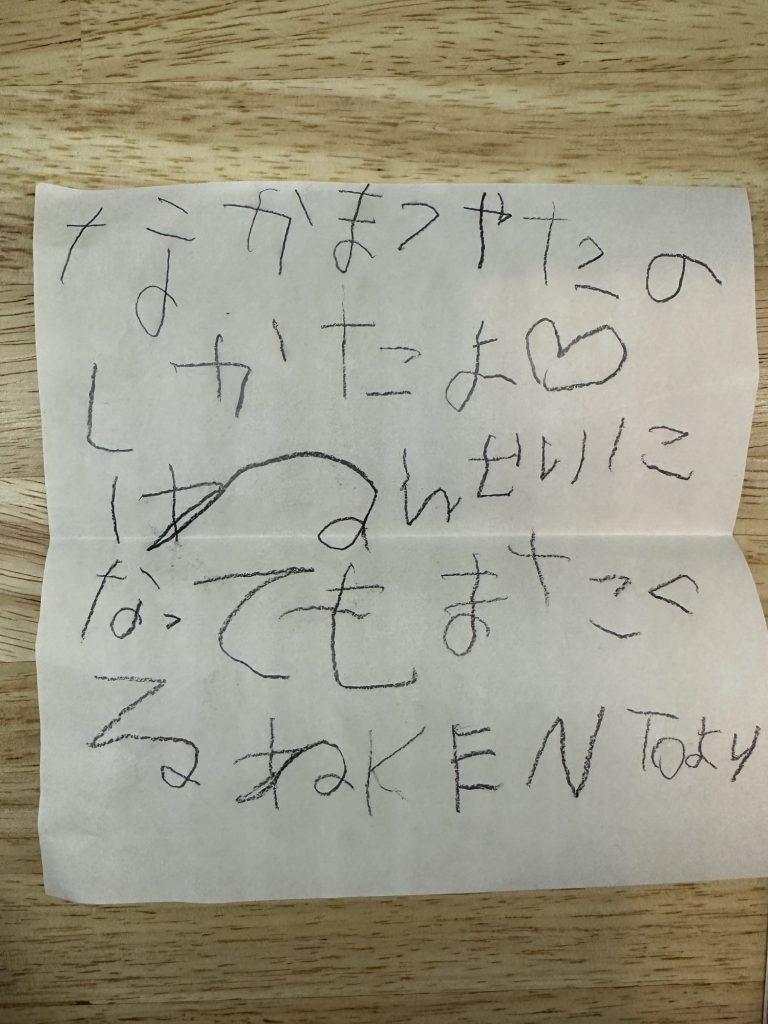 なかまつやたの
しかたよ♡
1ねんせいに
なってもまたく
るねKEN Toより